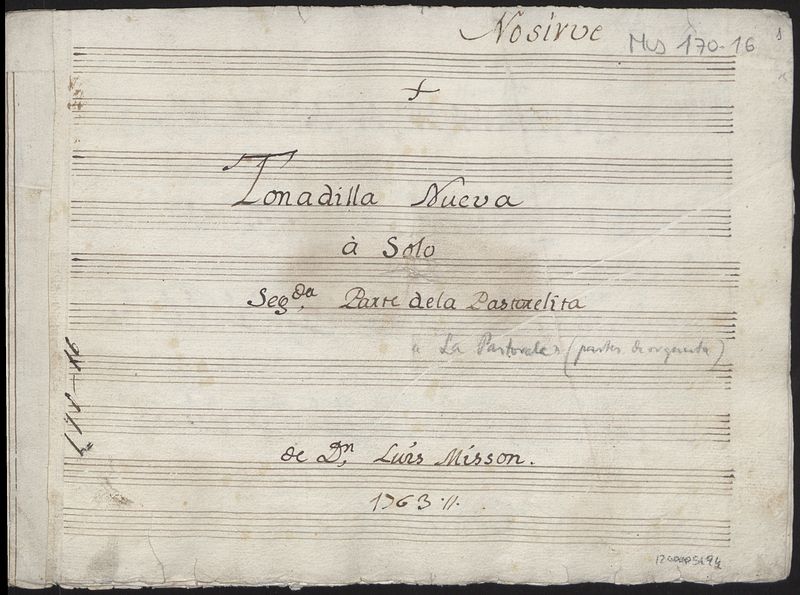 Nosirve
Mus 170-16
+
Tonadilla Nueva
à Solo
Seg.da Parte dela Pastorelita
"La Pastorela" (partes de orquesta)
de Dn. Luis Misson.
1763.//.